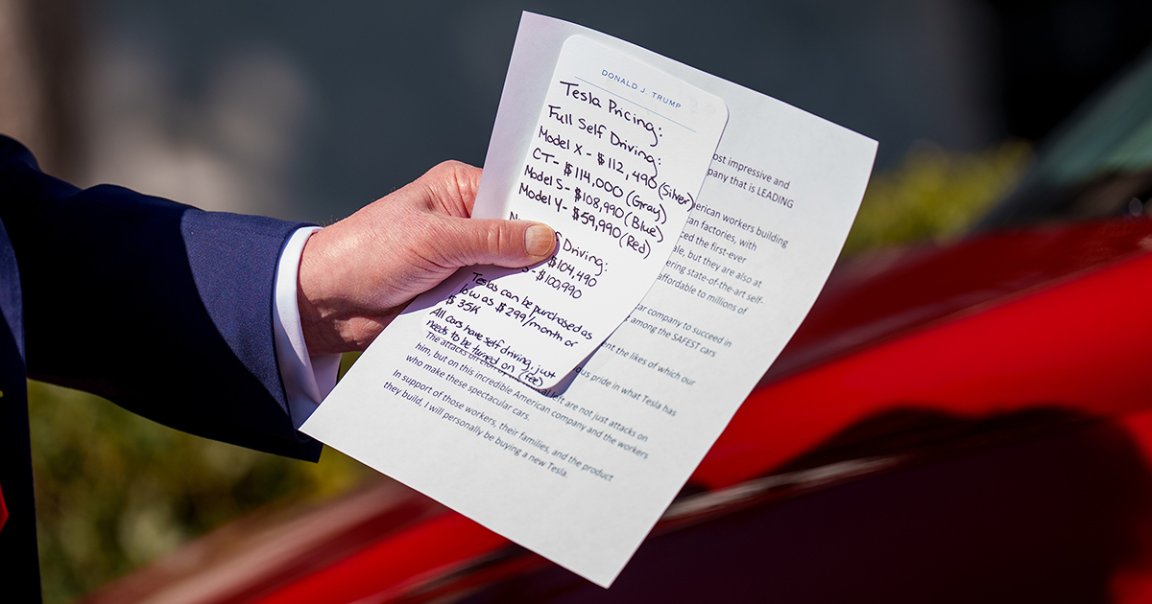 DONALD J. TRUMP
Tesla Pricing:
Full Self Driving:
Model X - $112,490 (Silver)
CT - $114,000 (Gray)
Model S - $108,990 (Blue)
Model Y - $59,990 (Red)
Driving:
$104,490
S - $100,990
Teslas can be purchased as
low as $299/month or
$35K
All cars have self driving, just
needs to be turned on (fee)
ost impressive and
pany that is LEADING
erican workers building
an factories, with
ced the first-ever
ale, but they are also at
ering state-of-the-art self-
affordable to millions of
ar company to succeed in
among the SAFEST cars
ent the likes of which our
ous pride in what Tesla has
The attacks on left are not just attacks on
him, but on this incredible American company and the workers
who make these spectacular cars.
In support of those workers, their families, and the product
they build, I will personally be buying a new Tesla.